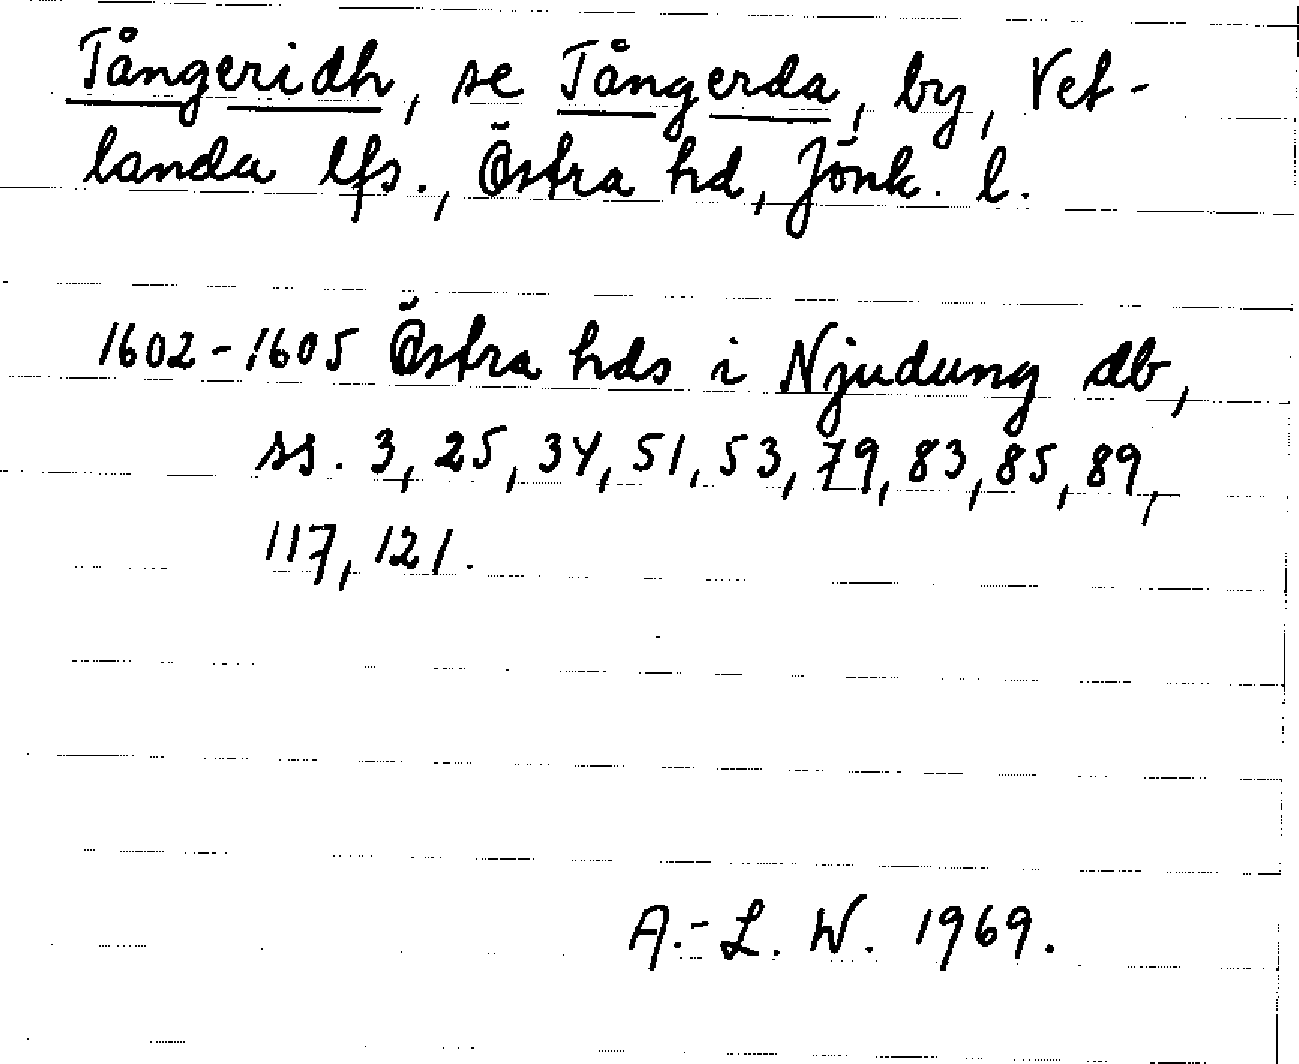 Tångeridh, se Tångerda, by, Vet-
landa lfs., Östra hd, Jönk. l.
1602-1605 Östra hds i Njudung db,
ss. 3, 25, 34, 51, 53, 79, 83, 85, 89,
117, 121.
A.-L. W. 1969.